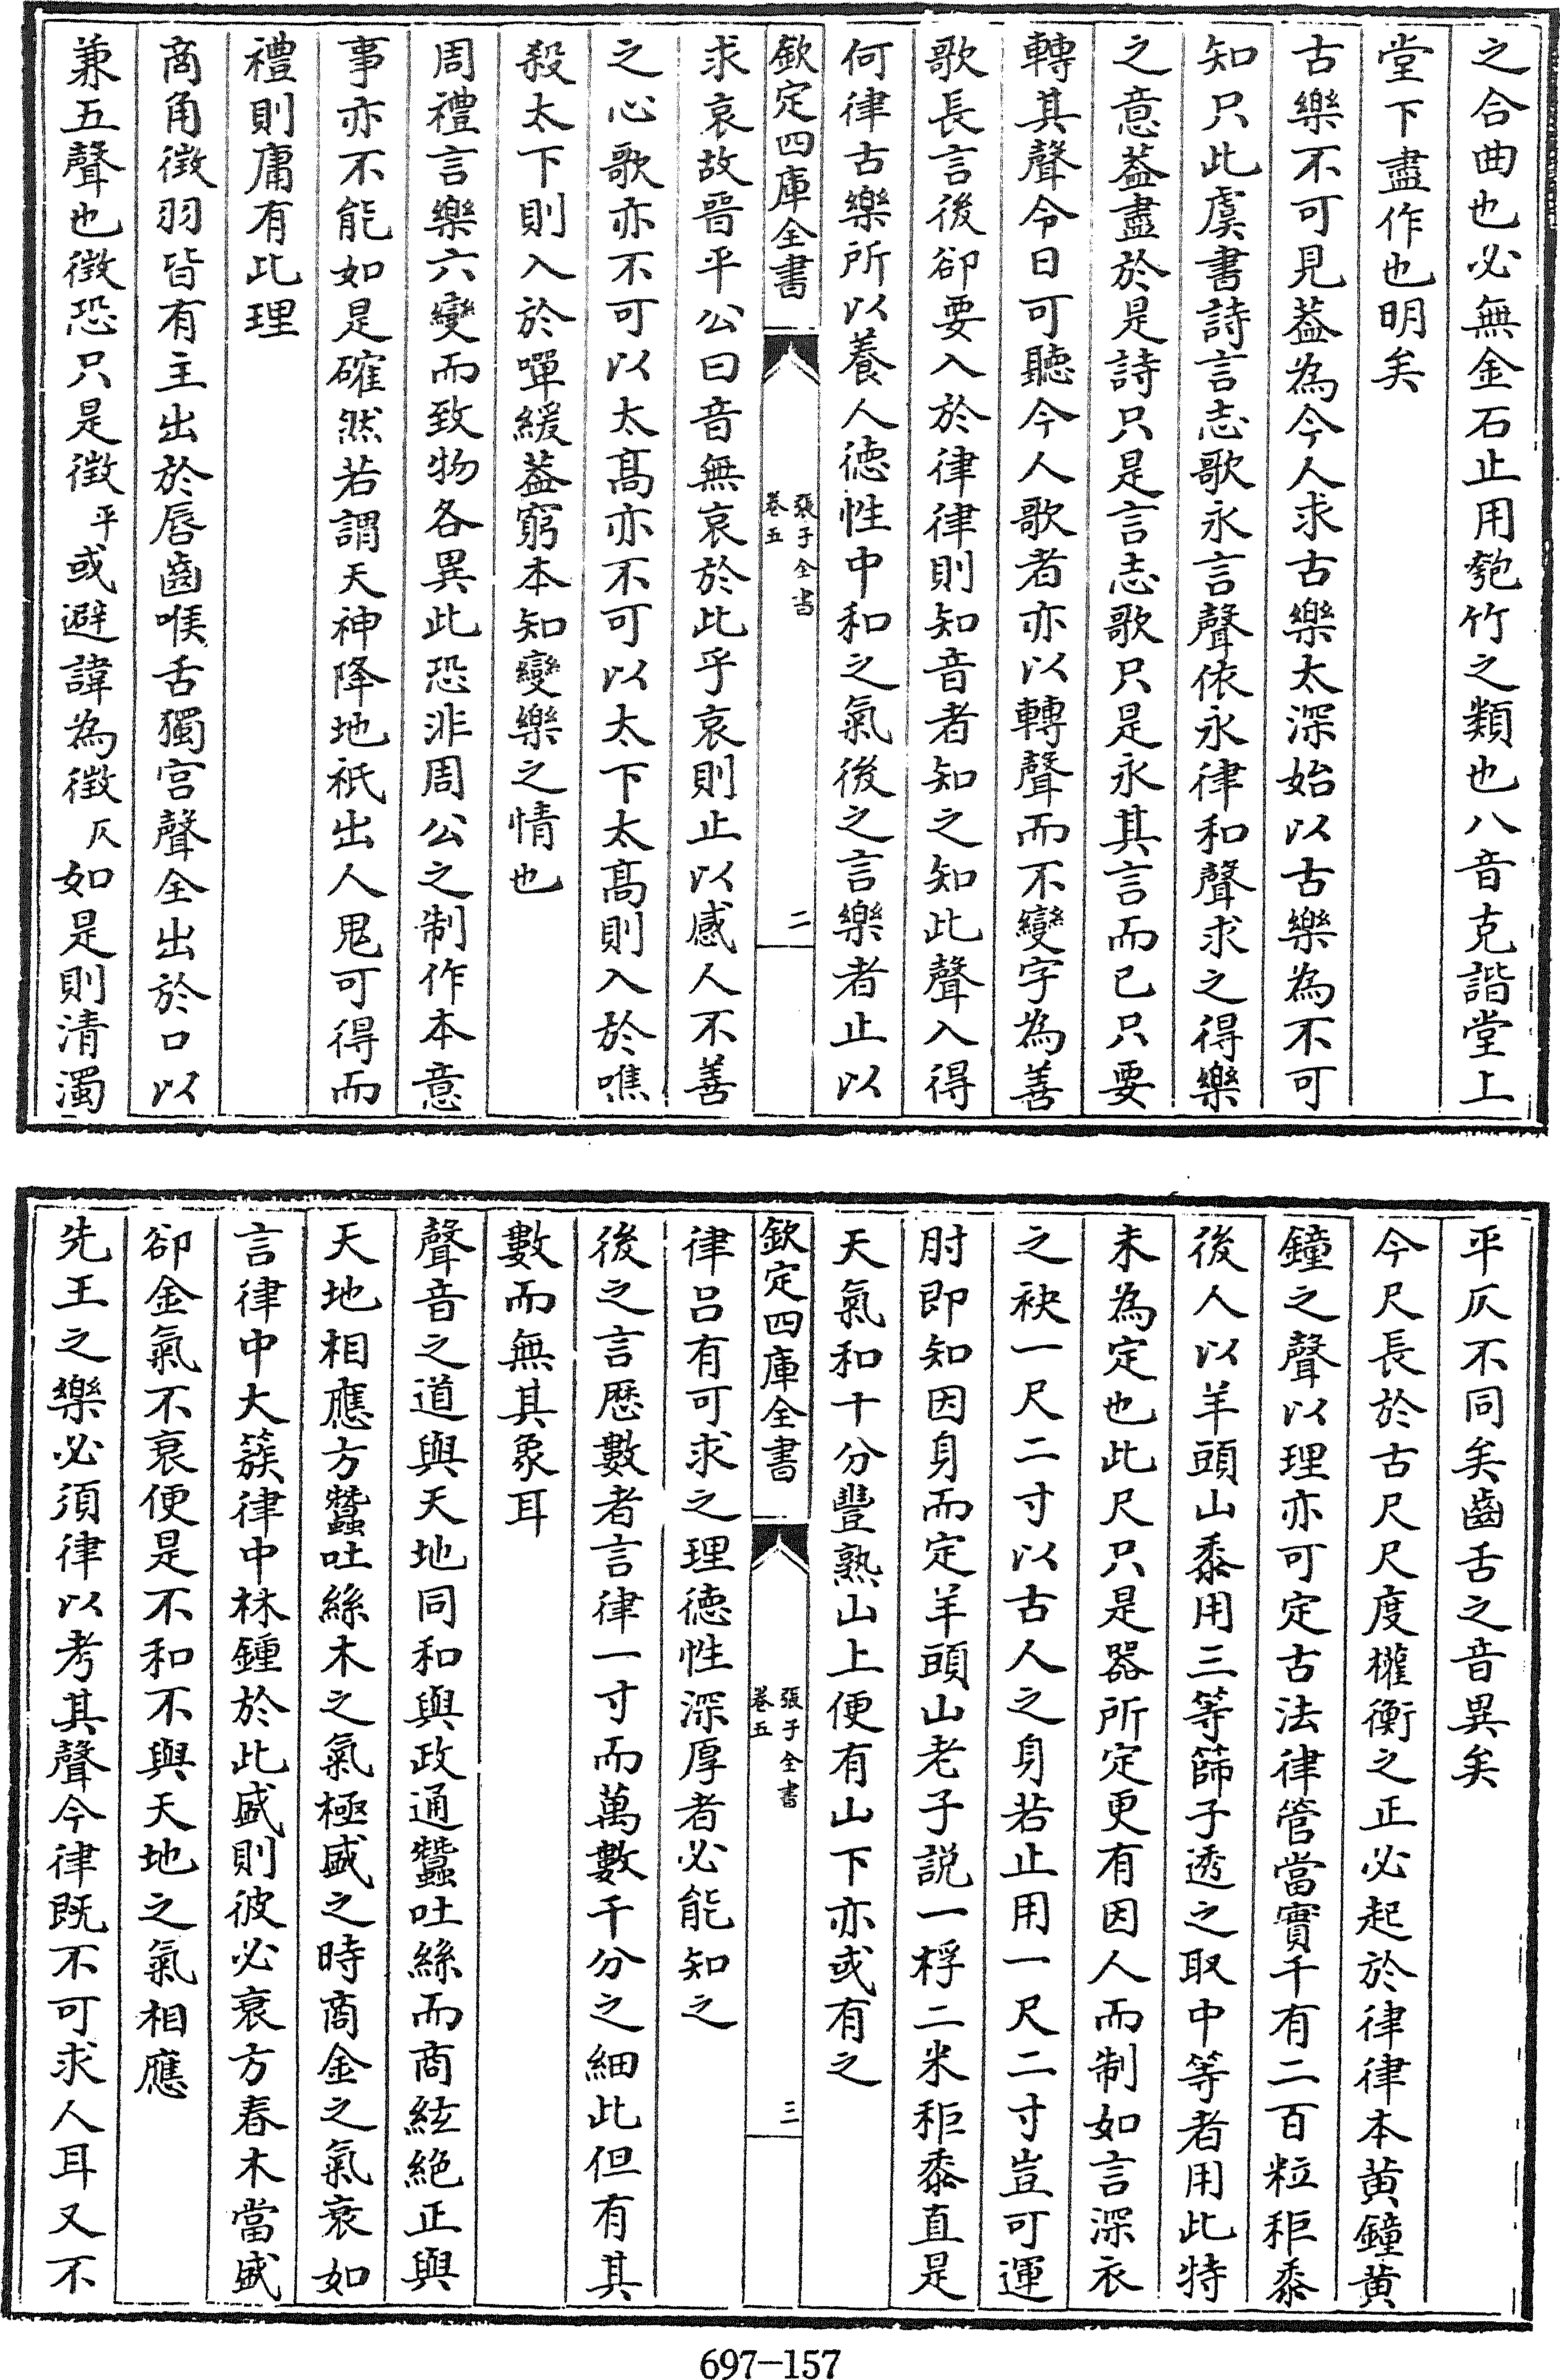 之合曲也必無金石止用匏竹之類也八音克諧堂上
堂下盡作也明矣
古樂不可見葢為今人求古樂太深始以古樂為不可
知只此虞書詩言志歌永言聲依永律和聲求之得樂
之意葢盡於是詩只是言志歌只是永其言而已只要
轉其聲令日可聽今人歌者亦以轉聲而不變字為善
歌長言後卻要入於律律則知音者知之知此聲入得
何律古樂所以養人徳性中和之氣後之言樂者止以
欽定四庫全書
張子全書
卷五
二
求哀故晉平公曰音無哀於此乎哀則止以感人不善
之心歌亦不可以太髙亦不可以太下太髙則入於噍
殺太下則入於嘽緩葢窮本知變樂之情也
周禮言樂六變而致物各異此恐非周公之制作本意
事亦不能如是確然若謂天神降地祇出人鬼可得而
禮則庸有此理
商角徵羽皆有主出於唇齒喉舌獨宫聲全出於口以
兼五聲也徵恐只是徵平或避諱為徵仄如是則清濁
平仄不同矣齒舌之音異矣
今尺長於古尺尺度權衡之正必起於律律本黄鐘黄
鐘之聲以理亦可定古法律管當實千有二百粒秬黍
後人以羊頭山黍用三等篩子透之取中等者用此特
未為定也此尺只是器所定更有因人而制如言深衣
之袂一尺二寸以古人之身若止用一尺二寸豈可運
肘即知因身而定羊頭山老子説一稃二米秬黍直是
天氣和十分豐熟山上便有山下亦或有之
欽定四庫全書
張子全書
卷五
三
律吕有可求之理徳性深厚者必能知之
後之言歴數者言律一寸而萬數千分之細此但有其
數而無其象耳
聲音之道與天地同和與政通蠶吐絲而商絃絶正與
天地相應方蠶吐絲木之氣極盛之時商金之氣衰如
言律中大簇律中林鍾於此盛則彼必衰方春木當盛
卻金氣不衰便是不和不與天地之氣相應
先王之樂必須律以考其聲今律既不可求人耳又不
697-157